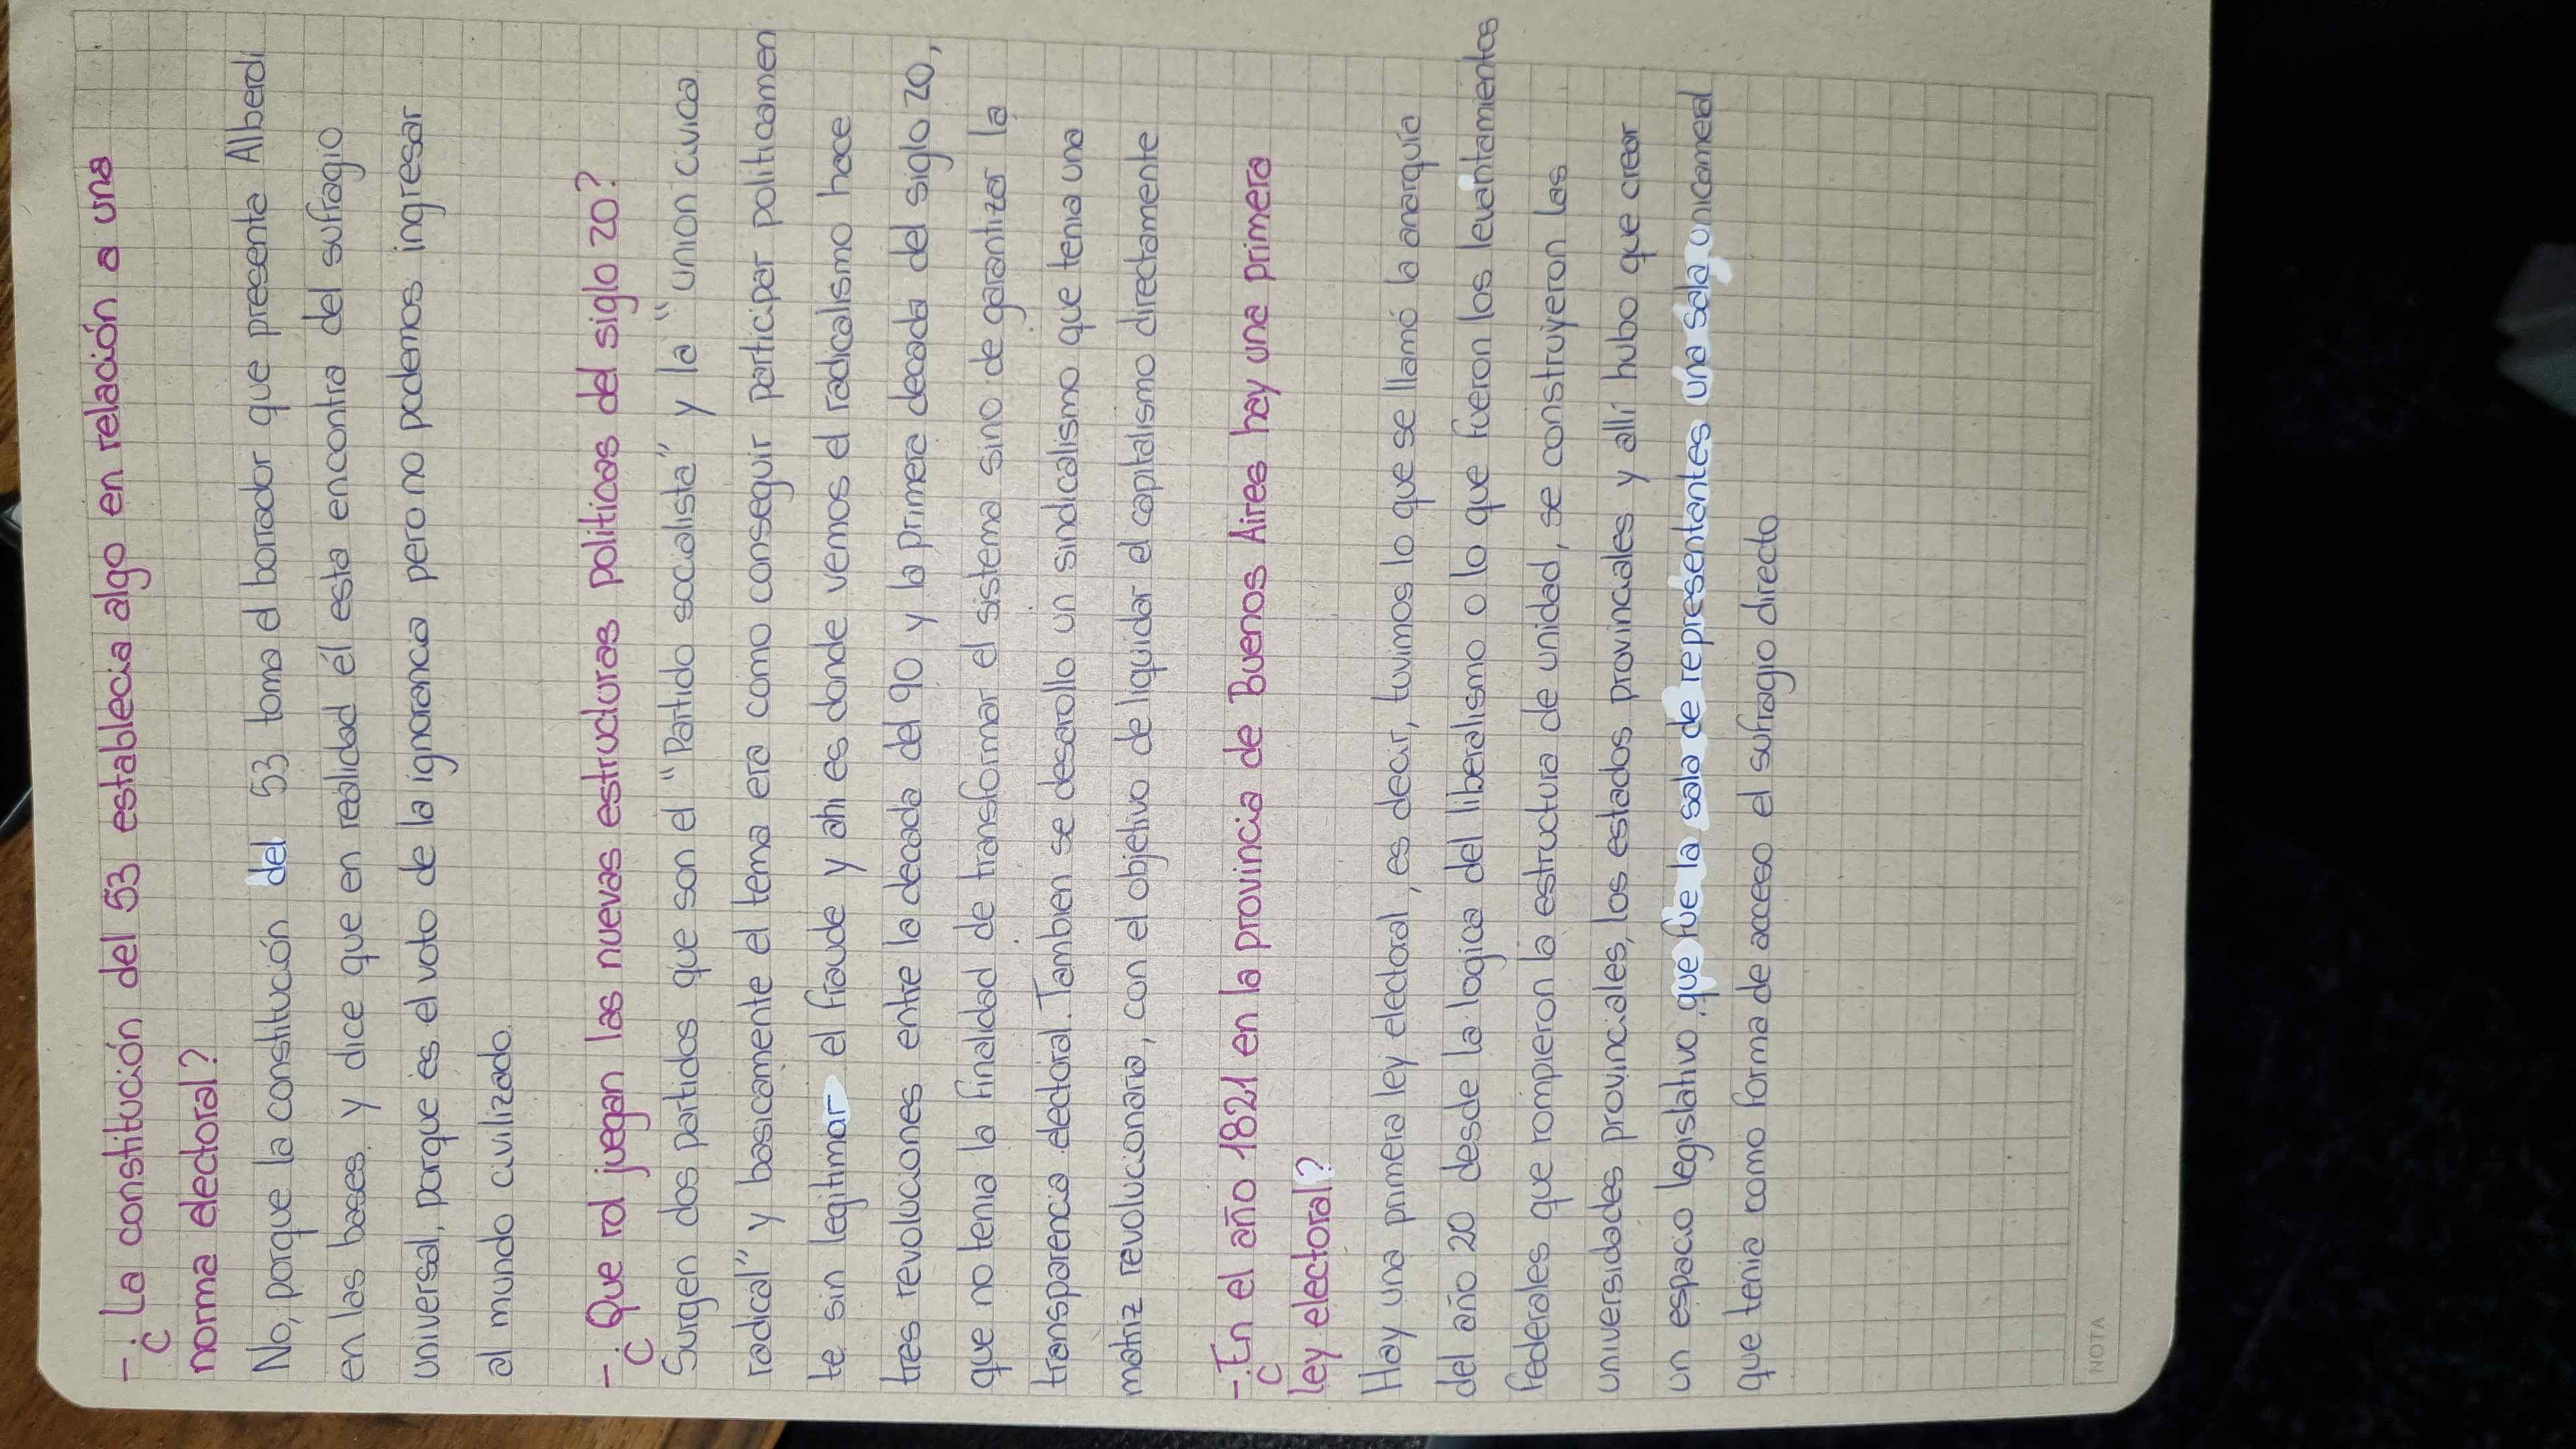 -¿La constitución del 53 establecia algo en relación a una
norma electoral?
No, porque la constitución del 53 toma el borrador que presenta Alberdi
en las bases y dice que en realidad él esta encontra del sufragio
universal, porque es el voto de la ignorancia pero no podemos ingresar
al mundo civilizado.
-¿Que rol juegan las nuevas estructuras politicas del siglo 20?
Surgen dos partidos que son el "Partido socialista" y la "union civica
radical" y basicamente el tema era como conseguir participar politicamen
te sin legitimar el fraude y ahi es donde vemos el radicalismo hace
tres revoluciones entre la decada del 90 y la primera decada del siglo 20,
que no tenia la finalidad de transformar el sistema sino de garantizar la
transparencia electoral. Tambien se desarollo un sindicalismo que tenia una
matriz revolucionaria, con el objetivo de liquidar el capitalismo directamente
-¿En el año 1821 en la provincia de Buenos Aires hay una primera
ley electoral?
Hay una primera ley electoral, es decir, tuvimos lo que se llamó la anarquía
del año 20 desde la logica del liberalismo o lo que fueron los levantamientos
federales que rompieron la estructura de unidad, se construyeron las
universidades provinciales, los estados provinciales y allí hubo que crear
un espacio legislativo que fue la sala de representantes una sala unicameral
que tenia como forma de acceso el sufragio directo
NOTA